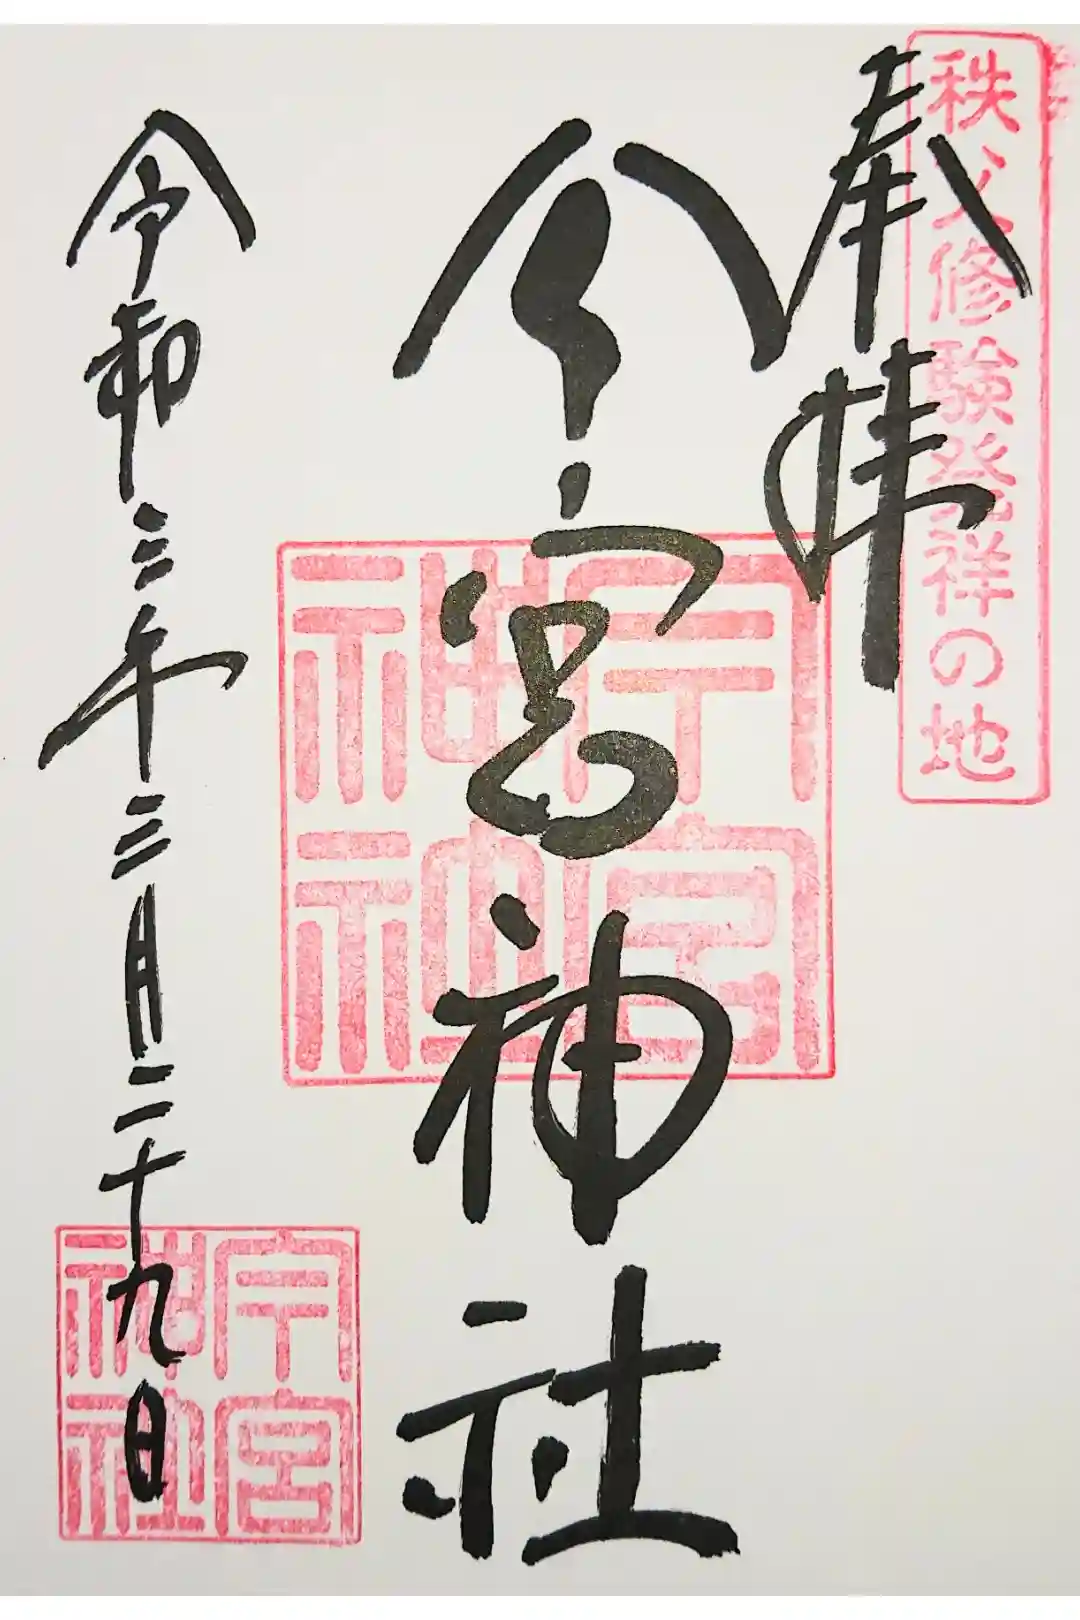 秩父修験発祥の地
奉拝
今宮神社
今宮神社
令和三年三月二十九日
今宮神社